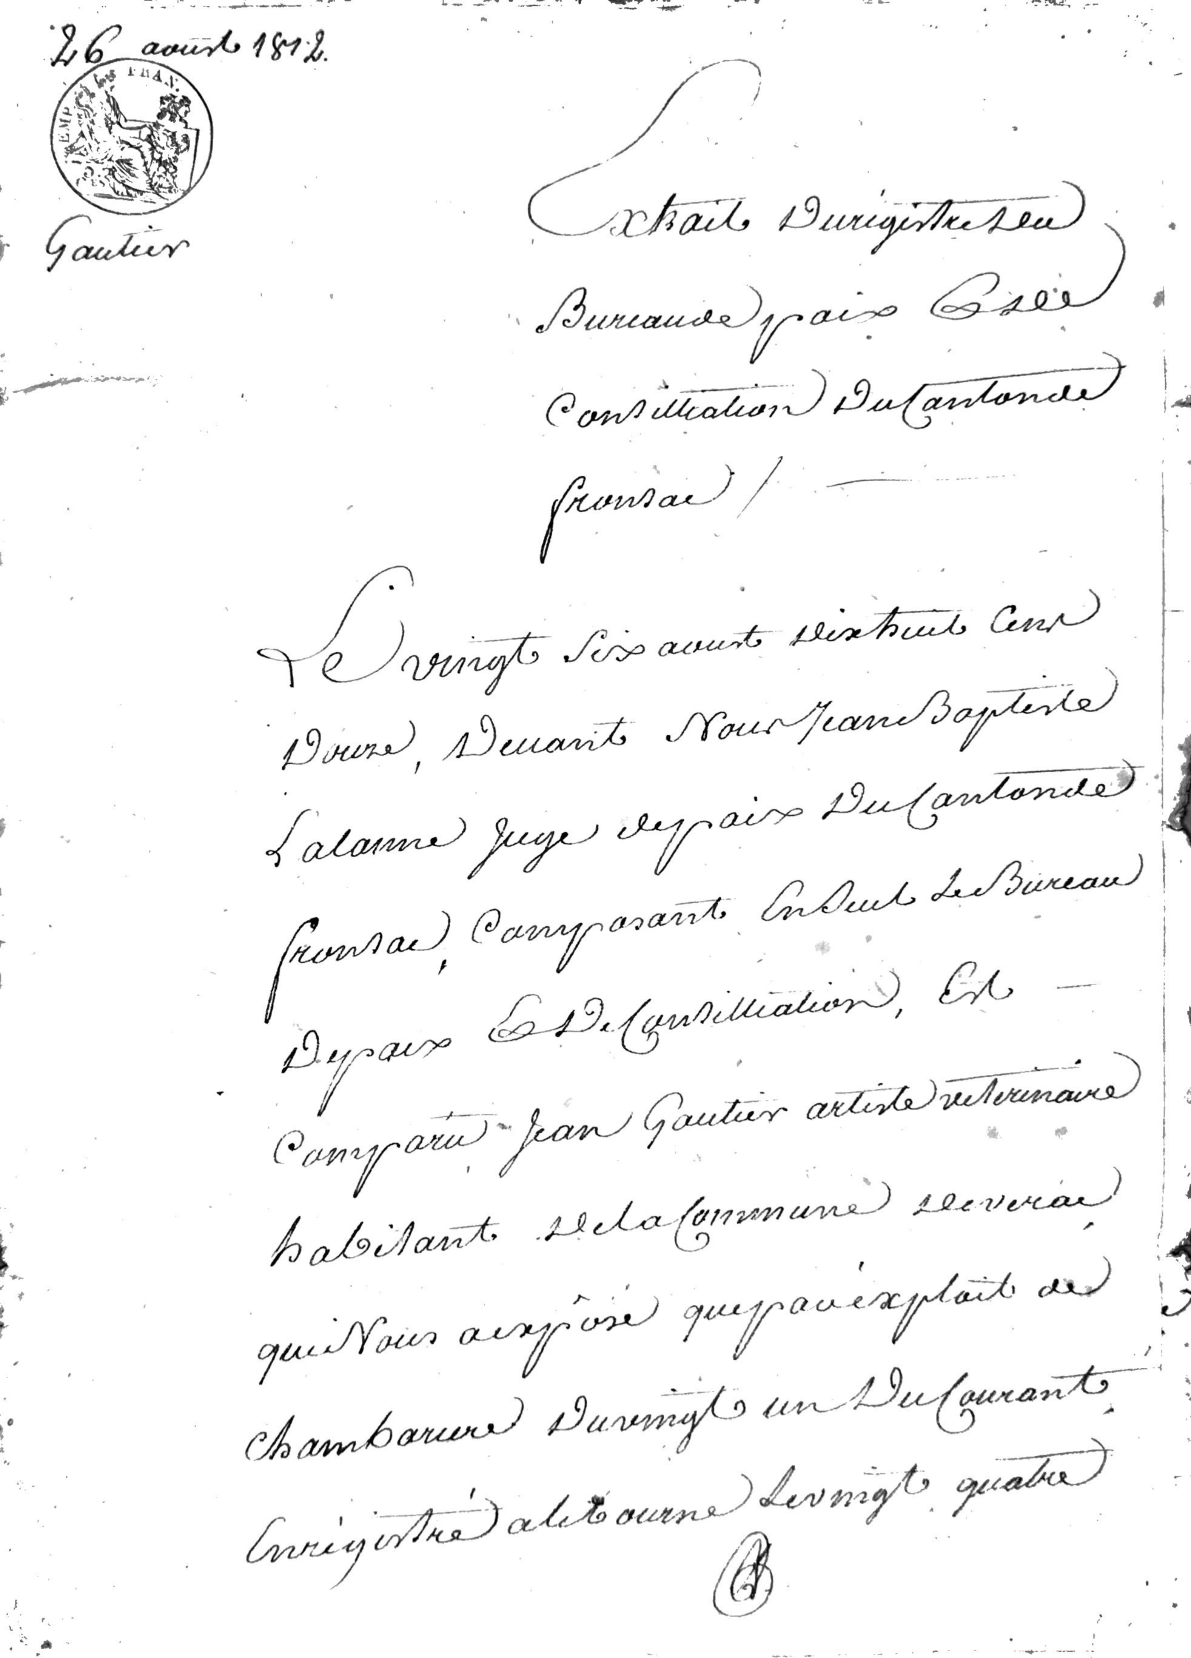 26 aoust 1812.
EMP FRAN.
Gautier
Extrait du régistre du
Bureau de paix & de
Consilliation du Canton de
fronsac /
Le vingt six aoust dix huit Cent
Douze, Devant Nous Jean Baptiste
Lalanne Juge de paix Du Canton de
fronsac, Composant En Seul Le Bureau
De paix & De Consilliation, Est
Comparu Jean Gautier artiste veterinaire
habitant de la Commune de verac
qui Nous a expôsé que par éxploit de
Chambarure Du vingt un Du Courant,
Enrégistré a le tourne Le vingt quatre